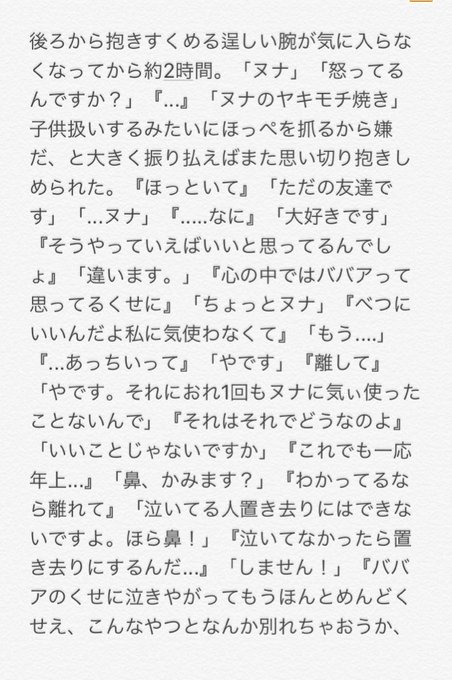 後ろから抱きすくめる逞しい腕が気に入らな
くなってから約2時間。「ヌナ」「怒ってる
んですか？」『...』「ヌナのヤキモチ焼き」
子供扱いするみたいにほっぺを抓るから嫌
だ、と大きく振り払えばまた思い切り抱きし
められた。『ほっといて』「ただの友達で
す」「...ヌナ」『.....なに』「大好きです」
『そうやっていえばいいと思ってるんでし
ょ』「違います。」『心の中ではババアって
思ってるくせに』「ちょっとヌナ」『べつに
いいんだよ私に気使わなくて』「もう....」
『...あっちいって』「やです」『離して』
「やです。それにおれ1回もヌナに気ぃ使った
ことないんで」『それはそれでどうなのよ』
「いいことじゃないですか」『これでも一応
年上...』「鼻、かみます？」『わかってるな
ら離れて』「泣いてる人置き去りにはできな
いですよ。ほら鼻！」『泣いてなかったら置
き去りにするんだ...』「しません！」『ババ
アのくせに泣きやがってもうほんとめんどく
せえ、こんなやつとなんか別れちゃおうか、